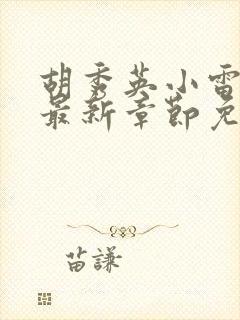 胡秀英小雷
最新章节免
苗謙